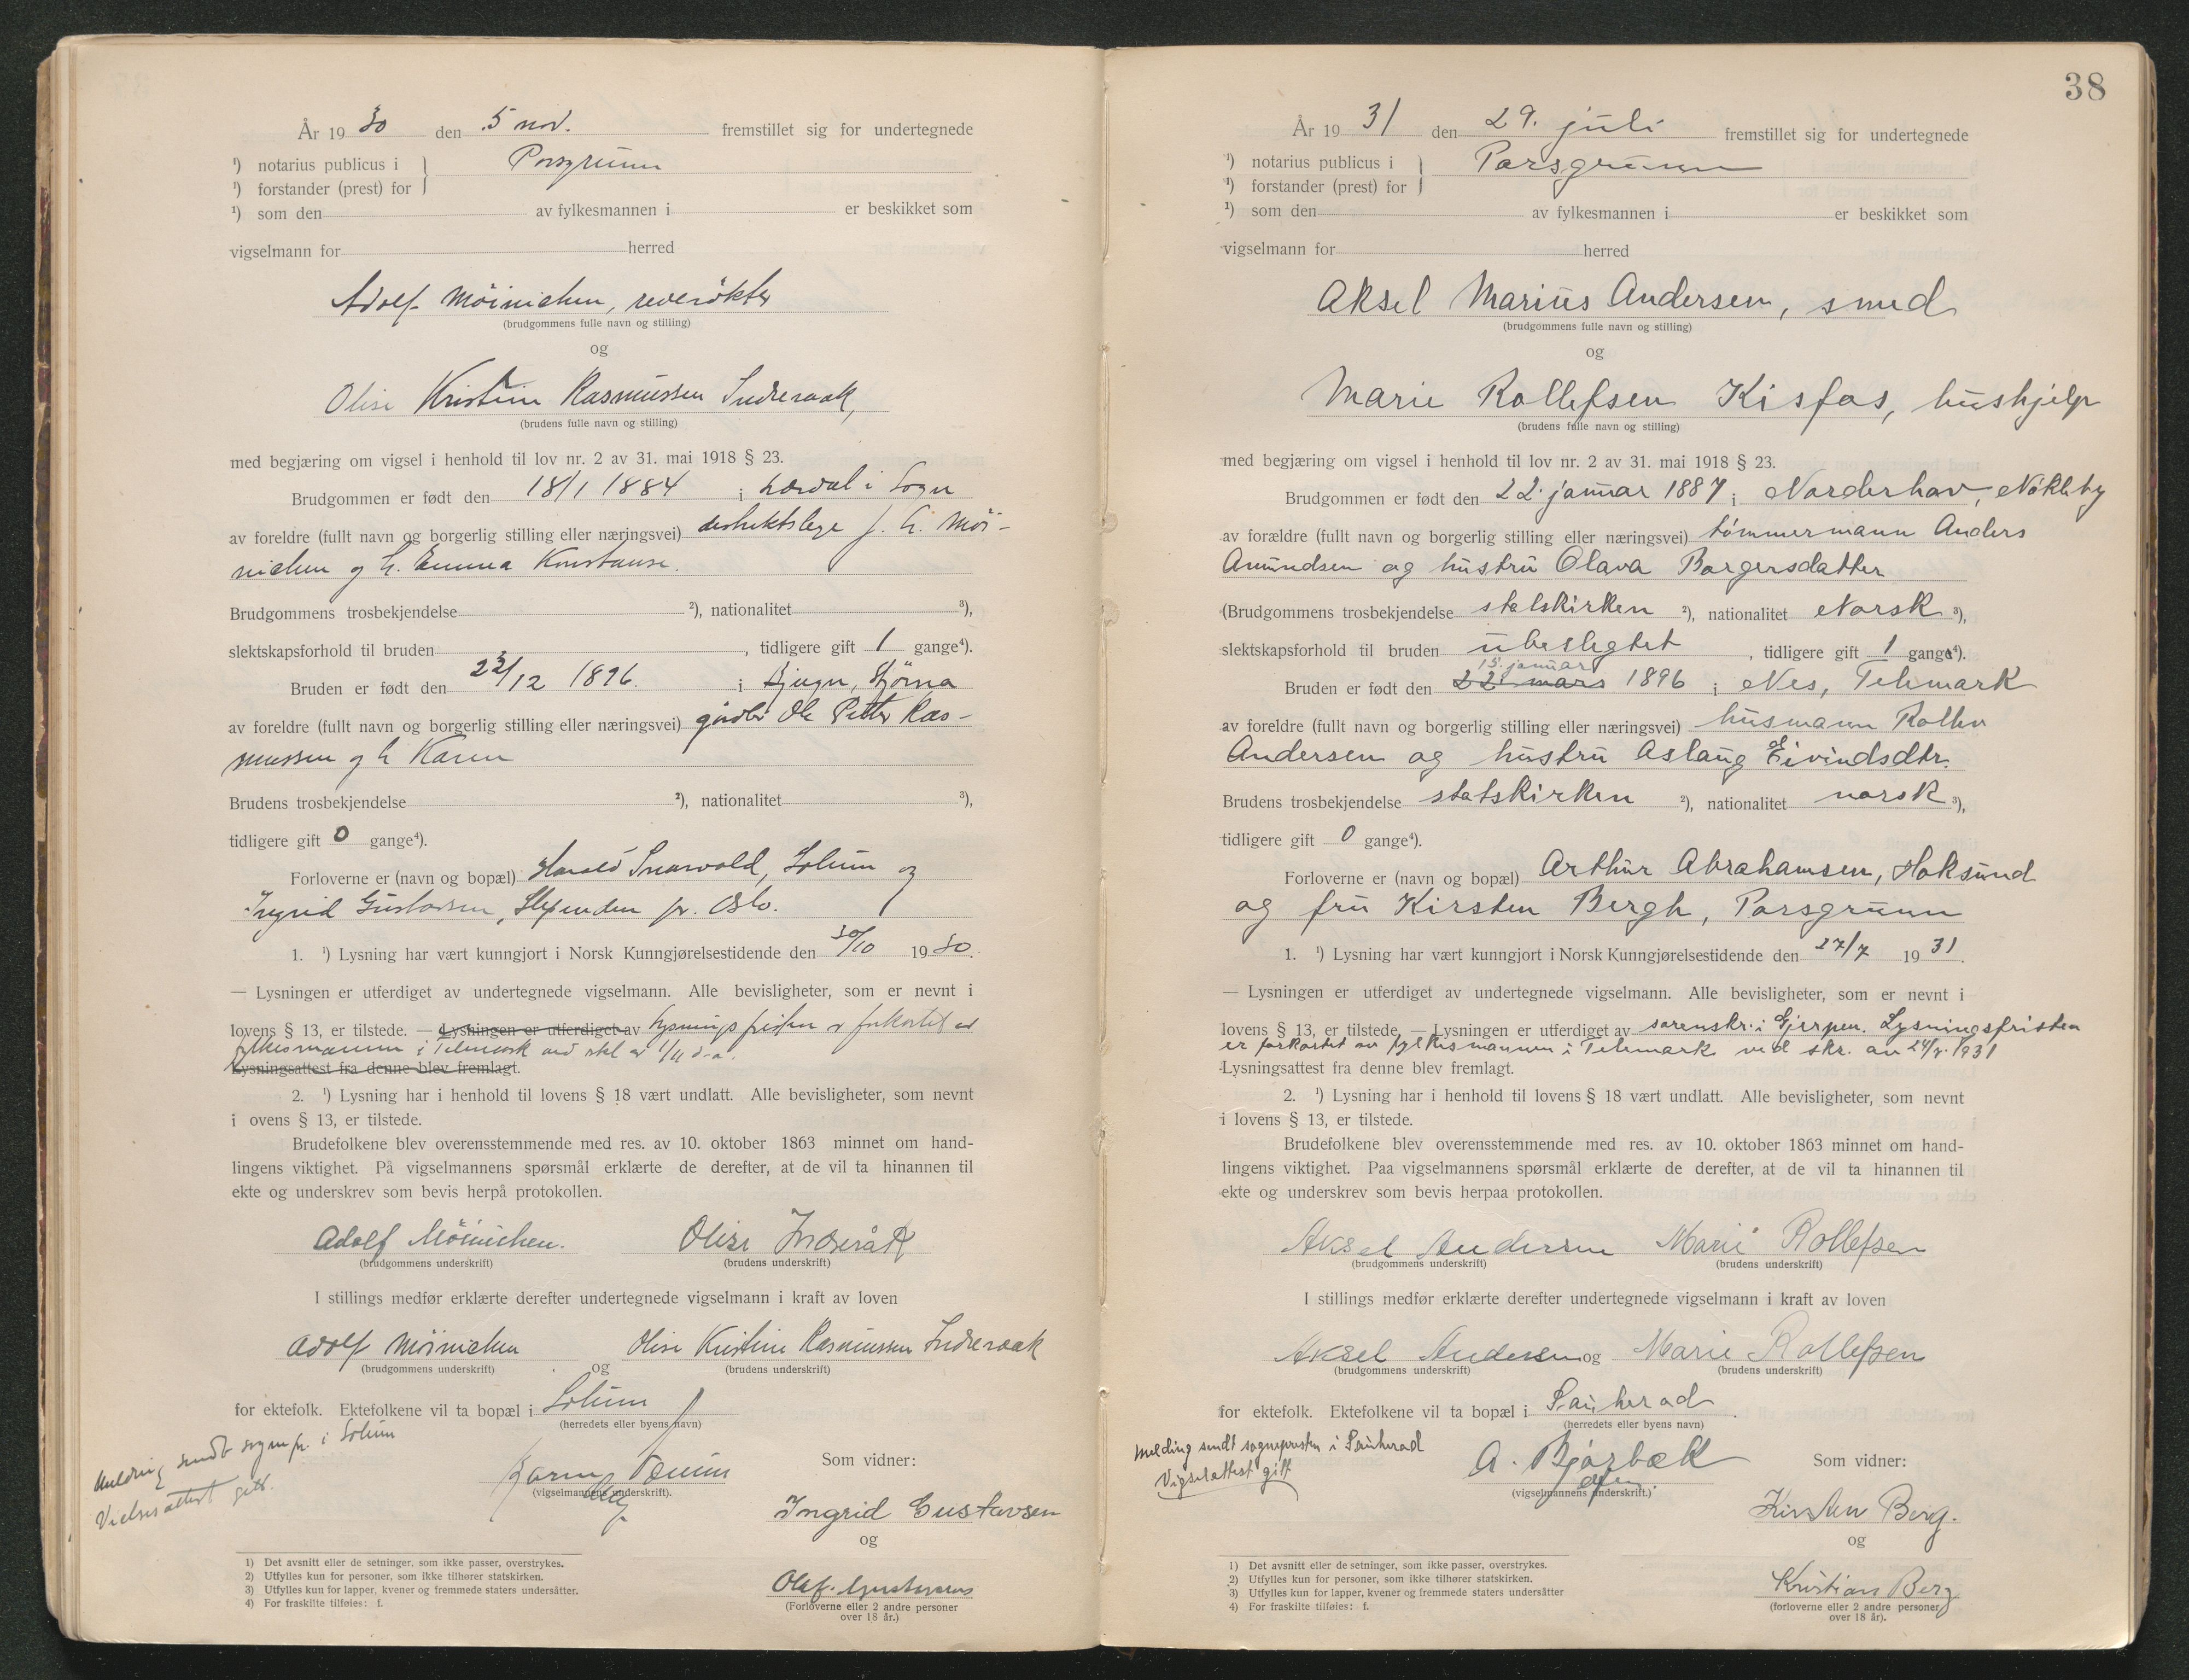 År 1930 den 5 nov. fremstillet sig for undertegnede
¹) notarius publicus i } Porsgrunn
¹) forstander (prest) for
¹) som den av fylkesmannen i er beskikket som
vigselmann for herred
Adolf Möinichen, reverökter
(brudgommens fulle navn og stilling)
og
Olise Kristine Rasmussen Indreraak,
(brudens fulle navn og stilling)
med begjæring om vigsel i henhold til lov nr. 2 av 31. mai 1918 § 23.
Brudgommen er født den 18/1 1884 i Lærdal i Sogn
av foreldre (fullt navn og borgerlig stilling eller næringsvei) distriktslege J. H. Möi-
nichen og h. Emma Konstanse.
Brudgommens trosbekjendelse ²), nationalitet ³),
slektskapsforhold til bruden , tidligere gift 1 gange⁴).
Bruden er født den 23/12 1896. i Bjugn, Stjörna
av foreldre (fullt navn og borgerlig stilling eller næringsvei) gårdbr Ole Petter Ras-
mussen og h Karen
Brudens trosbekjendelse ²), nationalitet ³),
tidligere gift 0 gange⁴).
Forloverne er (navn og bopæl) Harald Snarvold, Solum og
Ingrid Gustavsen, Slependen pr. Oslo.
1. ¹) Lysning har vært kunngjort i Norsk Kunngjørelsestidende den 30/10 1930.
— Lysningen er utferdiget av undertegnede vigselmann. Alle bevisligheter, som er nevnt i
lovens § 13, er tilstede. — Lysningen er utferdiget av Lysningsfristen er forkortet av
fylkesmannen i Telemark ved skl av 1/11 d.a.
Lysningsattest fra denne blev fremlagt.
2. ¹) Lysning har i henhold til lovens § 18 vært undlatt. Alle bevisligheter, som nevnt
i ovens § 13, er tilstede.
Brudefolkene blev overensstemmende med res. av 10. oktober 1863 minnet om hand-
lingens viktighet. På vigselmannens spørsmål erklærte de derefter, at de vil ta hinannen til
ekte og underskrev som bevis herpå protokollen.
Adolf Möinichen. Olise Indreråk
(brudgommens underskrift) (brudens underskrift)
I stillings medfør erklærte derefter undertegnede vigselmann i kraft av loven
Adolf Möinichen og Olise Kristine Rasmussen Indreraak
(brudgommens underskrift) (brudens underskrift)
for ektefolk. Ektefolkene vil ta bopæl i Solum
(herredets eller byens navn)
Melding sendt sognepr. i Solum
Vielsesattest gitt.
(vigselmannens underskrift).
Som vidner:
Ingrid Gustavsen
og
Olaf. Gustavsen
(Forloverne eller 2 andre personer
over 18 år.)
1) Det avsnitt eller de setninger, som ikke passer, overstrykes.
2) Utfylles kun for personer, som ikke tilhører statskirken.
3) Utfylles kun for lapper, kvener og fremmede staters undersåtter.
4) For fraskilte tilføies: f.
38
År 1931 den 29. juli fremstillet sig for undertegnede
¹) notarius publicus i } Porsgrunn
¹) forstander (prest) for
¹) som den av fylkesmannen i er beskikket som
vigselmann for herred
Aksel Marius Andersen, smed
(brudgommens fulle navn og stilling)
og
Marie Rollefsen Kisfos, hushjelp
(brudens fulle navn og stilling)
med begjæring om vigsel i henhold til lov nr. 2 av 31. mai 1918 § 23.
Brudgommen er født den 22. januar 1887 i Norderhov, Nökleby
av forældre (fullt navn og borgerlig stilling eller næringsvei) tömmermann Anders
Amundsen og hustru Olava Borgersdatter
(Brudgommens trosbekjendelse statskirken ²), nationalitet Norsk ³),
slektskapsforhold til bruden ubeslegtet , tidligere gift 1 gange⁴).
15. januar
Bruden er født den 22 mars 1896 i Nes, Telemark
av foreldre (fullt navn og borgerlig stilling eller næringsvei) husmann Rollev
Andersen og hustru Aslaug Eivindsdtr.
Brudens trosbekjendelse statskirken ²), nationalitet norsk ³),
tidligere gift 0 gange⁴).
Forloverne er (navn og bopæl) Arthur Abrahamsen, Hoksund
og fru Kirsten Bergh, Porsgrunn
1. ¹) Lysning har vært kunngjort i Norsk Kunngjørelsestidende den 27/7 1931.
— Lysningen er utferdiget av undertegnede vigselmann. Alle bevisligheter, som er nevnt i
lovens § 13, er tilstede. — Lysningen er utferdiget av sorenskr. i Gjerpen. Lysningsfristen
er forkortet av fylkesmannen i Telemark ved skr. av 24/7. 1931
Lysningsattest fra denne blev fremlagt.
2. ¹) Lysning har i henhold til lovens § 18 vært undlatt. Alle bevisligheter, som nevnt
i lovens § 13, er tilstede.
Brudefolkene blev overensstemmende med res. av 10. oktober 1863 minnet om hand-
lingens viktighet. Paa vigselmannens spørsmål erklærte de derefter, at de vil ta hinannen til
ekte og underskrev som bevis herpaa protokollen.
Aksel Andersen Marie Rollefsen
(brudgommens underskrift) (brudens underskrift)
I stillings medfør erklærte derefter undertegnede vigselmann i kraft av loven
Aksel Andersen og Marie Rollefsen
(brudgommens underskrift) (brudens underskrift)
for ektefolk. Ektefolkene vil ta bopæl i Sauherad
(herredets eller byens navn)
Melding sendt sognepresten i Sauherad
Vigselattest gitt
A. Bjørbæk
(vigselmannens underskrift.)
Som vidner:
Kirsten Berg.
og
Kristian Berg
(forloverne eller 2 andre personer
over 18 år).
1) Det avsnitt eller de setninger, som ikke passer, overstrykes.
2) Utfylles kun for personer, som ikke tilhører statskirken.
3) Utfylles kun for lapper, kvener og fremmede staters undersåtter
4) For fraskilte tilføies: f.